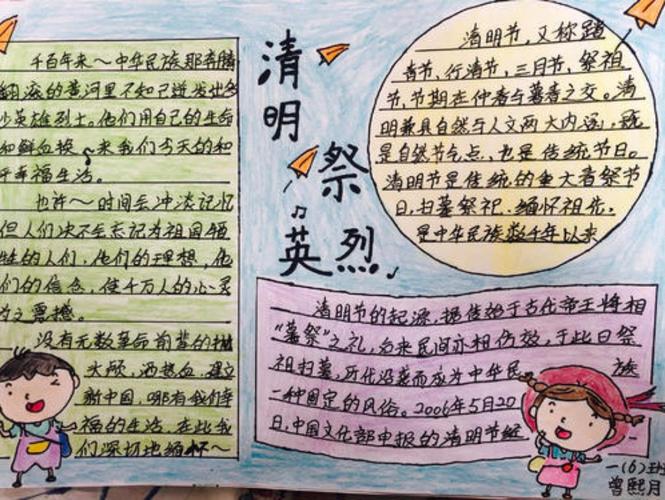 清明
祭
英烈
千百年来～中华民族那奔腾
翻滚的黄河里不知已迸发出多
少英雄烈士。他们用自己的生命
和鲜血换来我们今天的和
平幸福生活。
也许～时间会冲淡记忆
但人们决不会忘记为祖国牺
牲的人们，他们的理想，他
们的信仓，使千万人的心灵
为之震撼。
没有无数革命前辈的抛
头颅，洒热血，建立
新中国，哪有我们幸
福的生活，在此我
们深切地缅怀～
清明节，又称踏
青节、行清节、三月节、祭祖
节，节期在仲春与暮春之交。清
明兼具自然与人文两大内涵，既
是自然节气点，也是传统节日。
清明节是传统的重大春祭节
日，扫墓祭祀、缅怀祖先，
是中华民族数千年以来
清明节的起源，据传始于古代帝王将相
“墓祭”之礼，后来民间亦相仿效，于此日祭
祖扫墓，历代沿袭而成为中华民族
一种固定的风俗。2006年5月20
日，中国文化部申报的清明节经
一(6)班
曾熙月